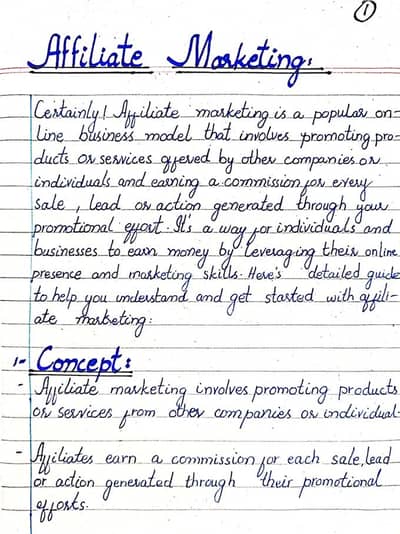 1
Affiliate Marketing:
Certainly! Affiliate marketing is a popular on-
line business model that involves promoting pro-
ducts or services offered by other companies or
individuals and earning a commission for every
sale, lead or action generated through your
promotional effort. It's a way for individuals and
businesses to earn money by leveraging their online
presence and marketing skills. Here's detailed guide
to help you understand and get started with affili-
ate marketing:
1- Concept:
- Affiliate marketing involves promoting products
or services from other companies or individual.
- Affiliates earn a commission for each sale, lead
or action generated through their promotional
efforts.